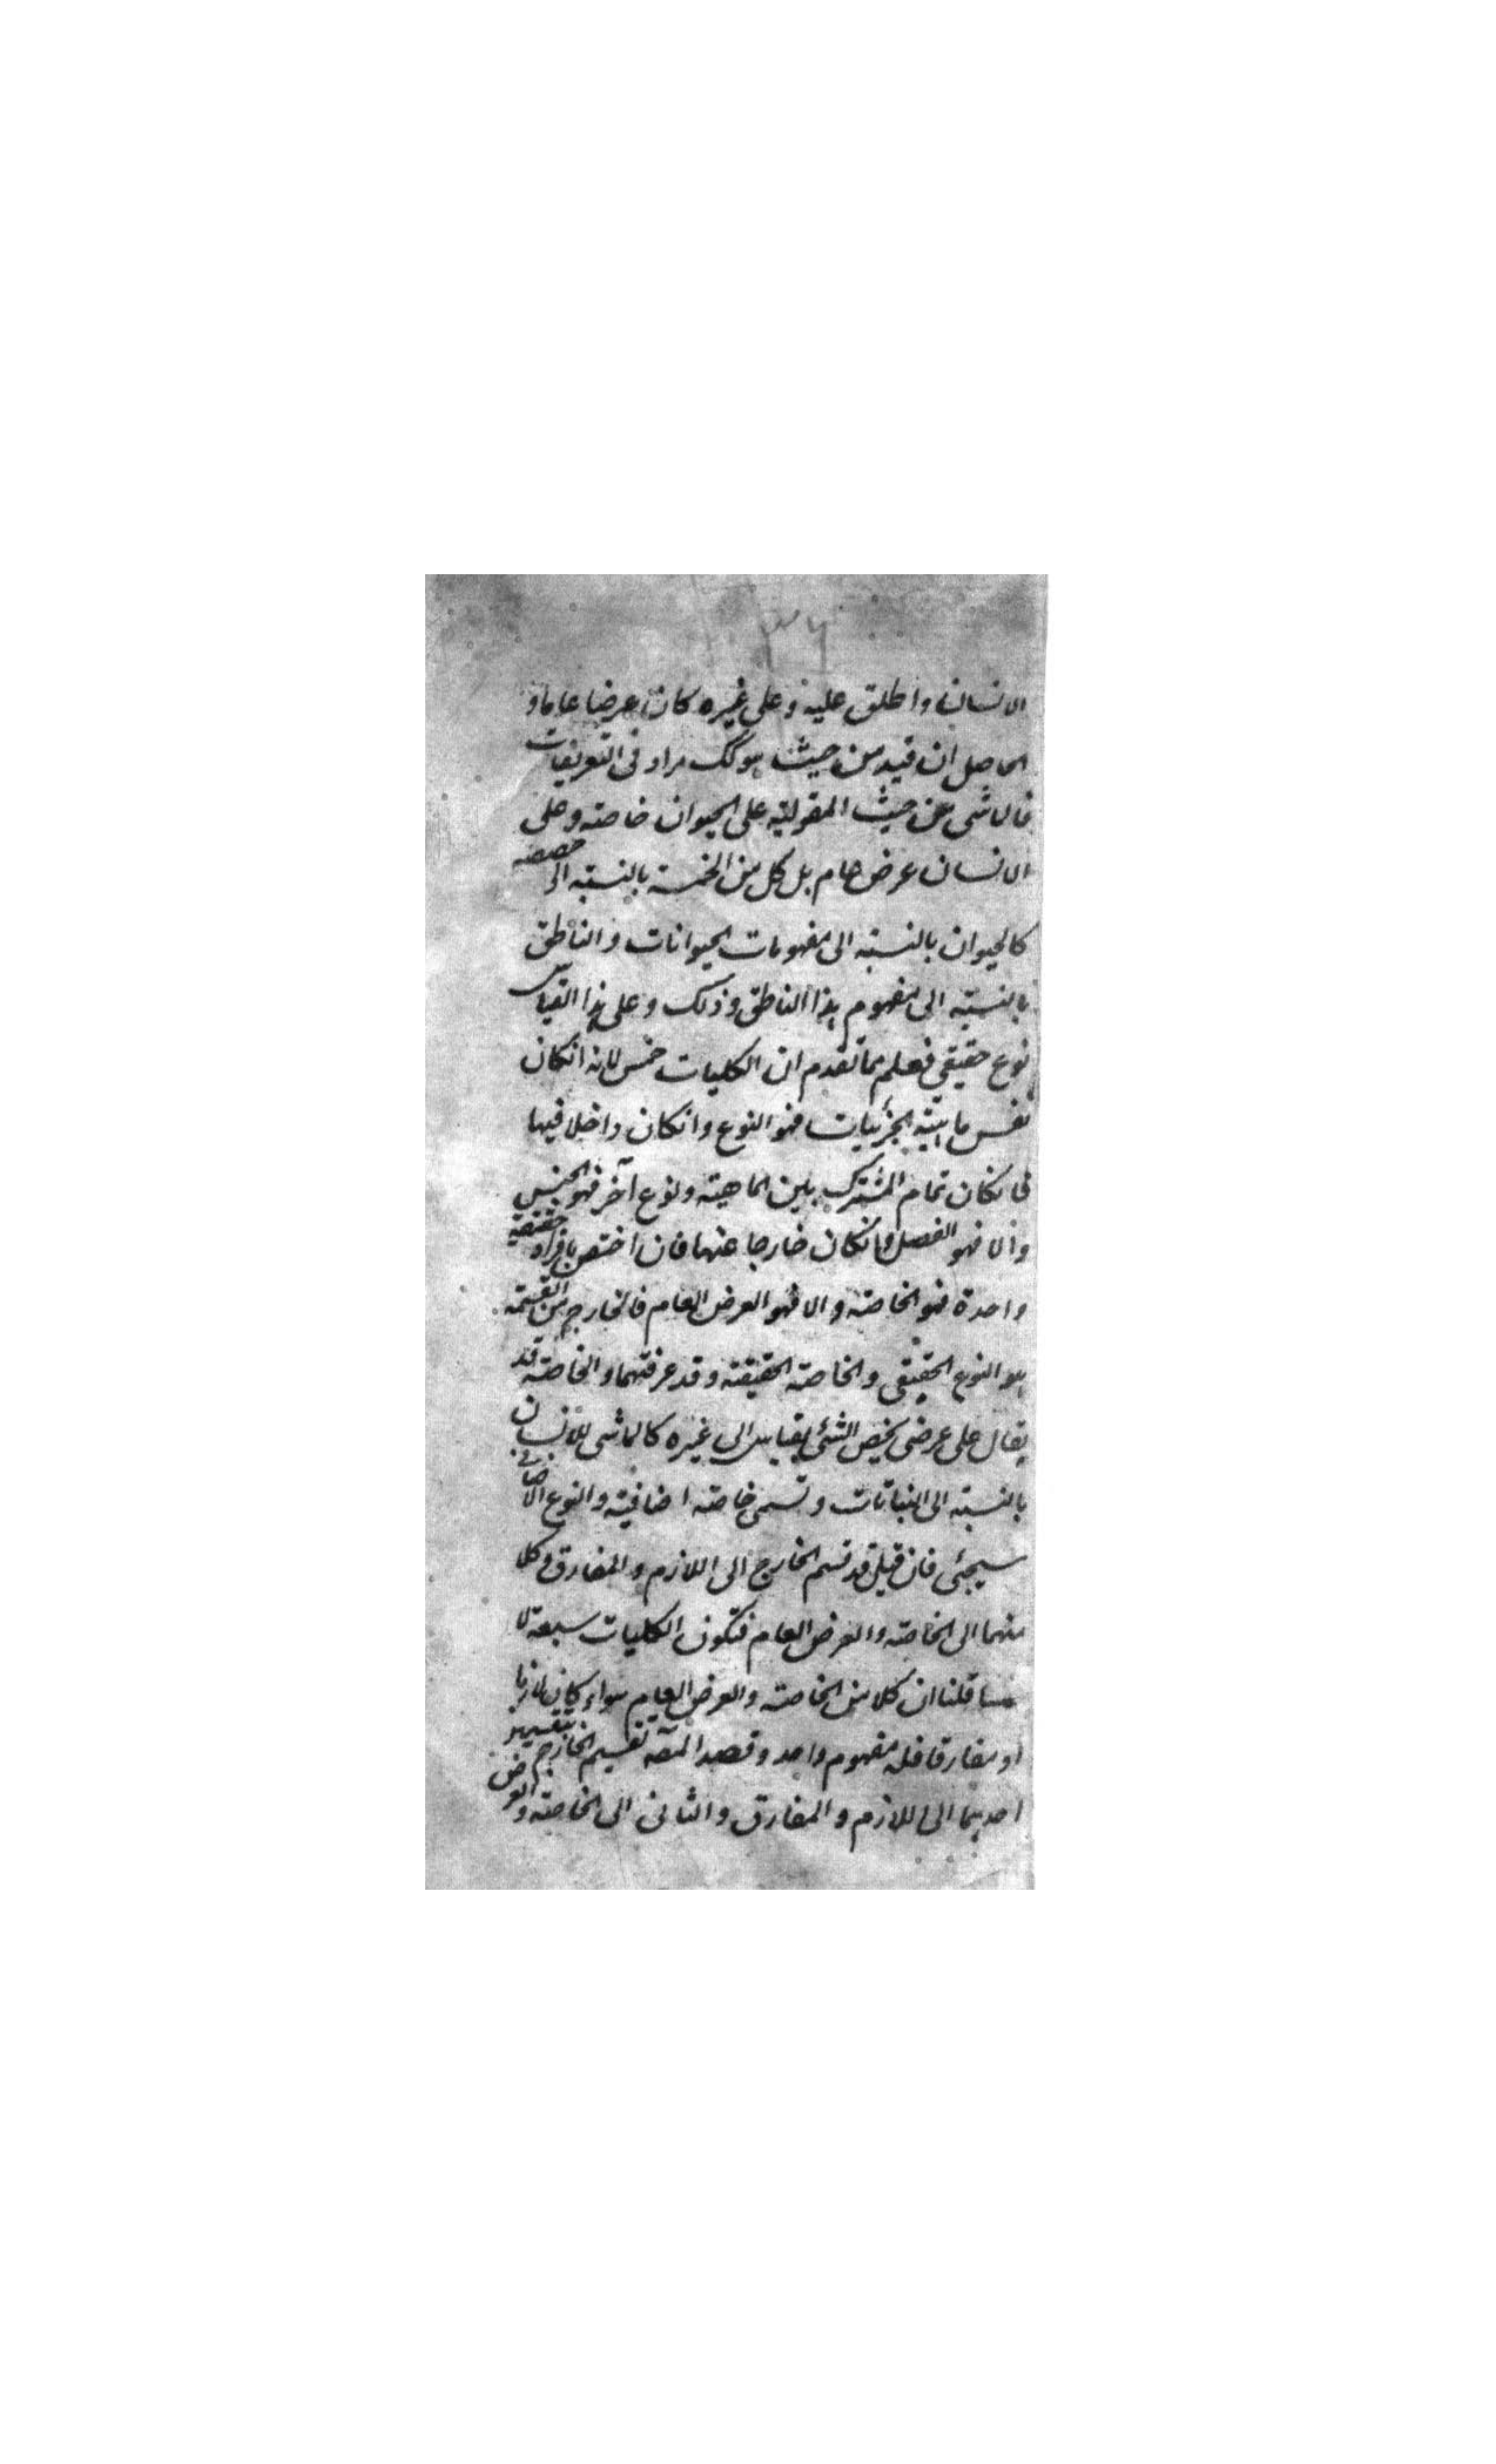 ٣٤
الانسان واطلق عليه وعلى غيره كان عرضا عاما و
الحاصل ان قيد من حيث هو كك مراد فى التعريفات
فالماشى من حيث المقولية على الحيوان خاصة وعلى
الانسان عرض عام بل كل من الخمسة بالنسبة الى حصصه
كالحيوان بالنسبة الى مفهومات الحيوانات والناطق
بالنسبة الى مفهوم هذا الناطق وذلك وعلى هذا القياس
نوع حقيقى فعلم مما تقدم ان الكليات خمس لانه انكان
نفس ماهية الجزئيات فهو النوع وانكان داخلا فيها
فانكان تمام المشترك بين الماهية ونوع آخر فهو الجنس
والا فهو الفصل وانكان خارجا عنها فان اختص بافراد حقيقية
واحدة فهو الخاصة والا فهو العرض العام فالخارج من القسمة
هو النوع الحقيقى والخاصة الحقيقة وقد عرفتهما والخاصة قد
يقال على عرضى يخص الشئ بقياس الى غيره كالماشى للانسان
بالنسبة الى النباتات وتسمى خاصة اضافية والنوع الاضافى
سيجئ فان قيل قد قسم الخارج الى اللازم والمفارق وكلا
منهما الى الخاصة والعرض العام فتكون الكليات سبعة لا
خمسا قلنا ان كلا من الخاصة والعرض العام سواء كان لازما
او مفارقا فله مفهوم واحد وقصد المصه تقسيم الخارج بتقسيمين
احديهما الى اللازم والمفارق والثانى الى الخاصة والعرض